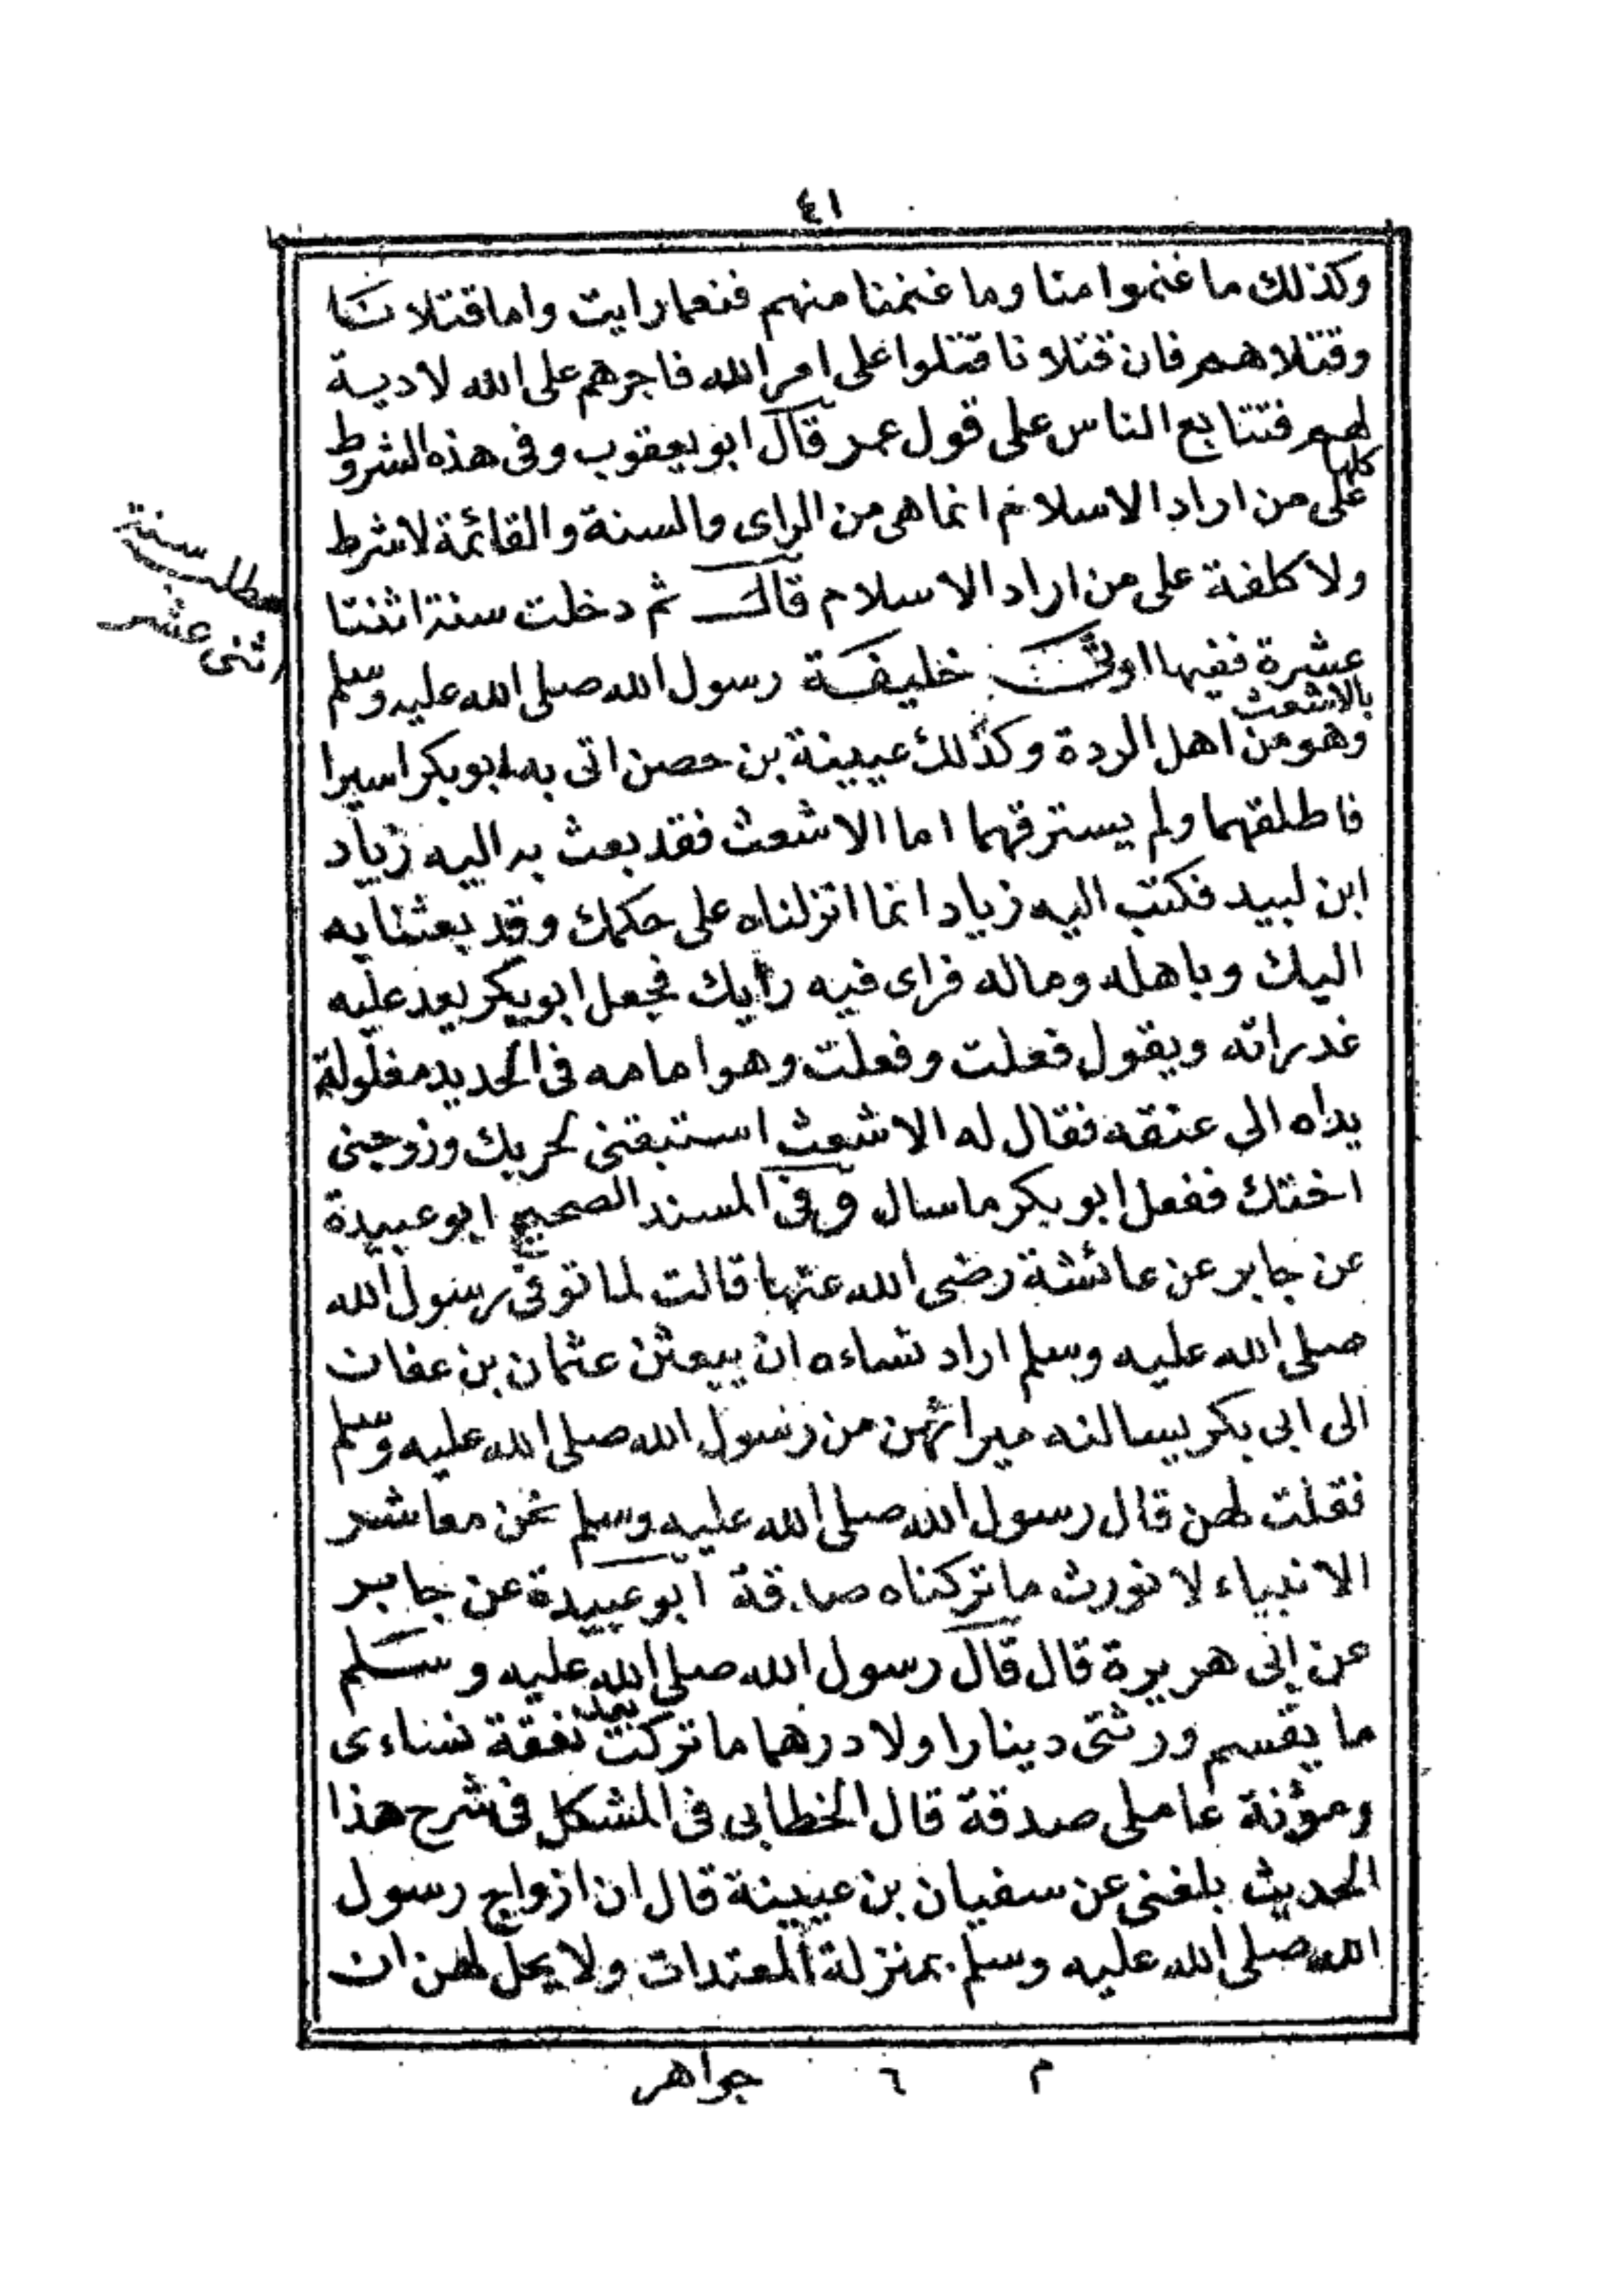 ٤١
وكذلك ما غنموا منا وما غنمنا منهم فنعما رايت واما قتلانا
وقتلاهم فان قتلانا قتلوا على امر الله فاجرهم على الله لا دية
لهم فتتابع الناس على قول عمر قال ابو يعقوب وفى هذه الشروط
كلها
على من اراد الاسلام انما هى من الراى والسنة والقائمة لا شرط
ولا كلفة على من اراد الاسلام قال ثم دخلت سنة اثنتا
مطلب سنة
اثنى عشر
عشرة ففيها خليفة رسول الله صلى الله عليه وسلم
بالاشعث
وهو من اهل الردة وكذلك عيينة بن حصن اتى به ابو بكر اسيرا
فاطلقهما ولم يسترقهما اما الاشعث فقد بعث به اليه زياد
ابن لبيد فكتب اليه زياد انما انزلناه على حكمك وقد بعثنا به
اليك وباهله وماله فراى فيه رأيك فجعل ابو بكر يعد عليه
غدراته ويقول فعلت وفعلت وهو امامه فى الحديد مغلولة
يداه الى عنقه فقال له الاشعث استبقنى لحربك وزوجنى
اختك ففعل ابو بكر ما سال وفى المسند الصحيح ابو عبيدة
عن جابر عن عائشة رضى الله عنها قالت لما توفى رسول الله
صلى الله عليه وسلم اراد نساءه ان يبعثن عثمان بن عفان
الى ابى بكر يسالنه ميراثهن من رسول الله صلى الله عليه وسلم
فقلت لهن قال رسول الله صلى الله عليه وسلم نحن معاشر
الانبياء لا نورث ما تركناه صدقة ابو عبيدة عن جابر
عن ابى هريرة قال قال رسول الله صلى الله عليه وسلم
ما يقسم ورثتى دينارا ولا درهما ما تركت بعد نفقة نساءى
ومؤنة عاملى صدقة قال الخطابى فى المشكل فى شرح هذا
الحديث بلغنى عن سفيان بن عيينة قال ان ازواج رسول
الله صلى الله عليه وسلم بمنزلة المعتدات ولا يحل لهن ان
م ٦ جواهر